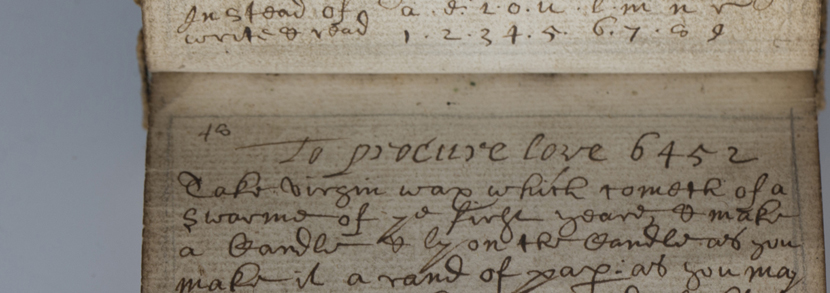 Instead of a . e . i . o . u . l . m n r
write & read 1 . 2 . 3 4 . 5 . 6 . 7 . 8 9
48
To procure love 6452
Take virgin wax which cometh of a
Swarme of ye first yeare, & make
a Candle & ly on the Candle as you
make it a rand of pap: as you may